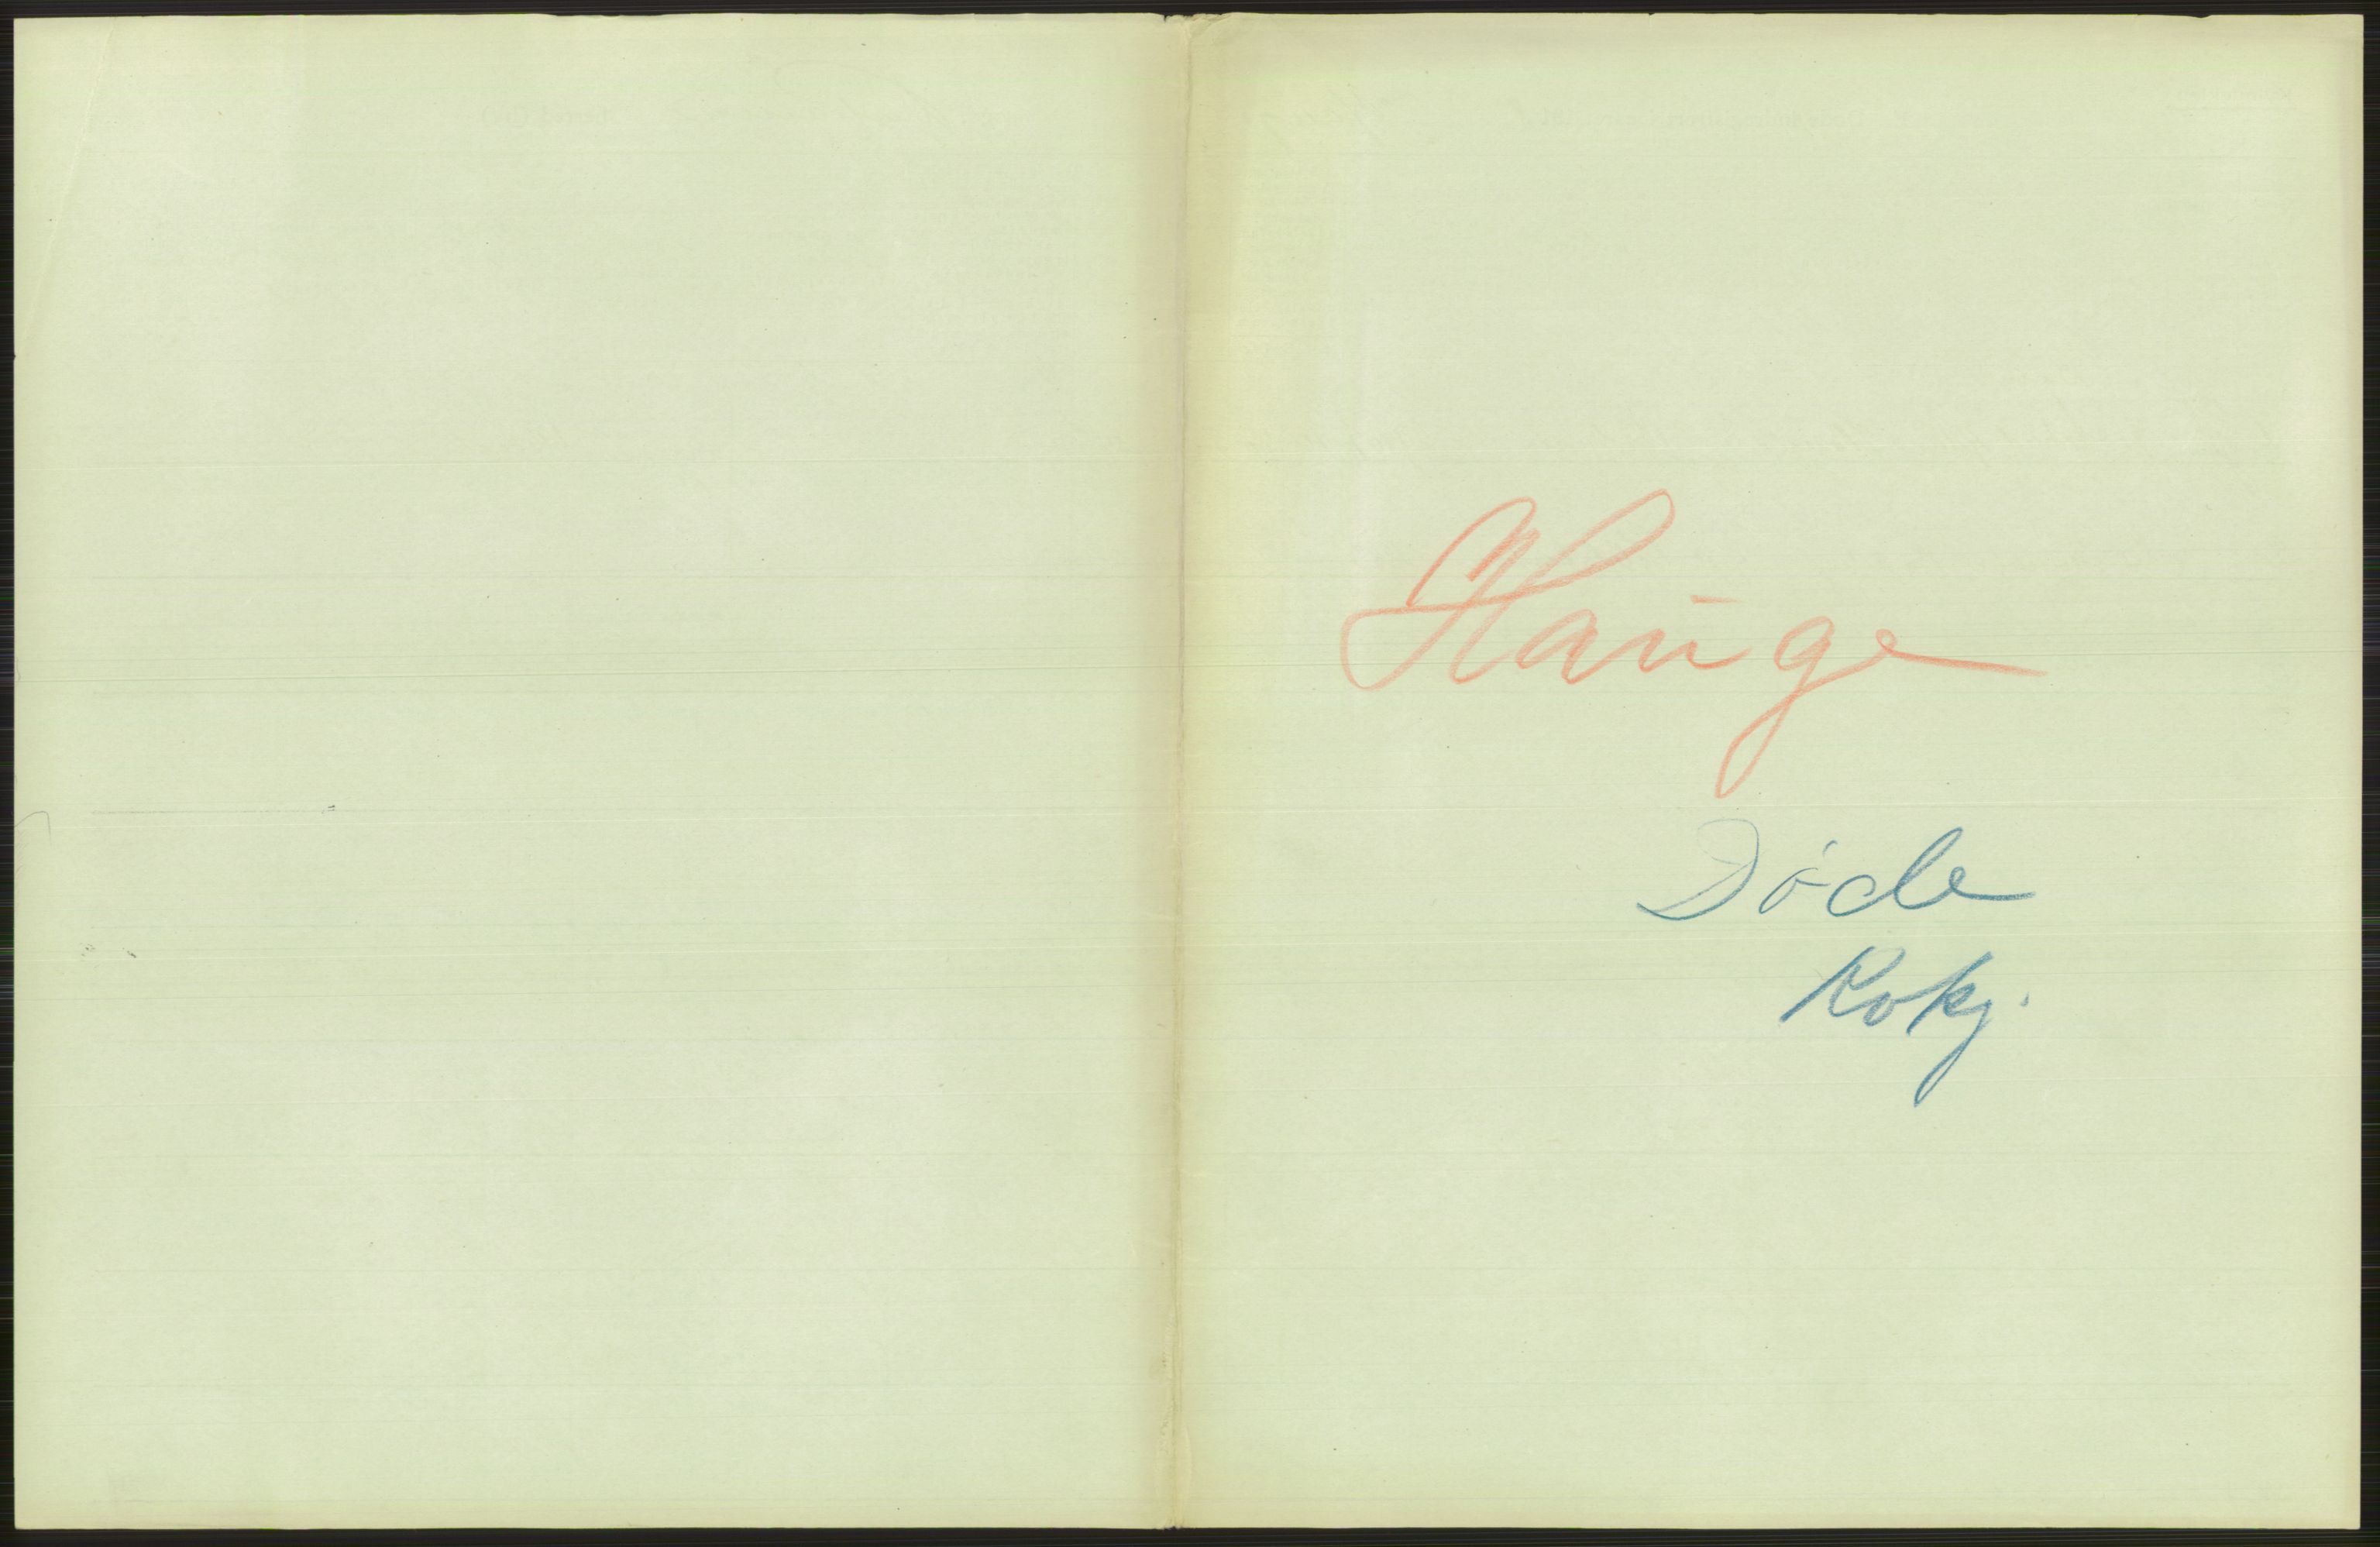 Hauge
Døde
Kvkj.